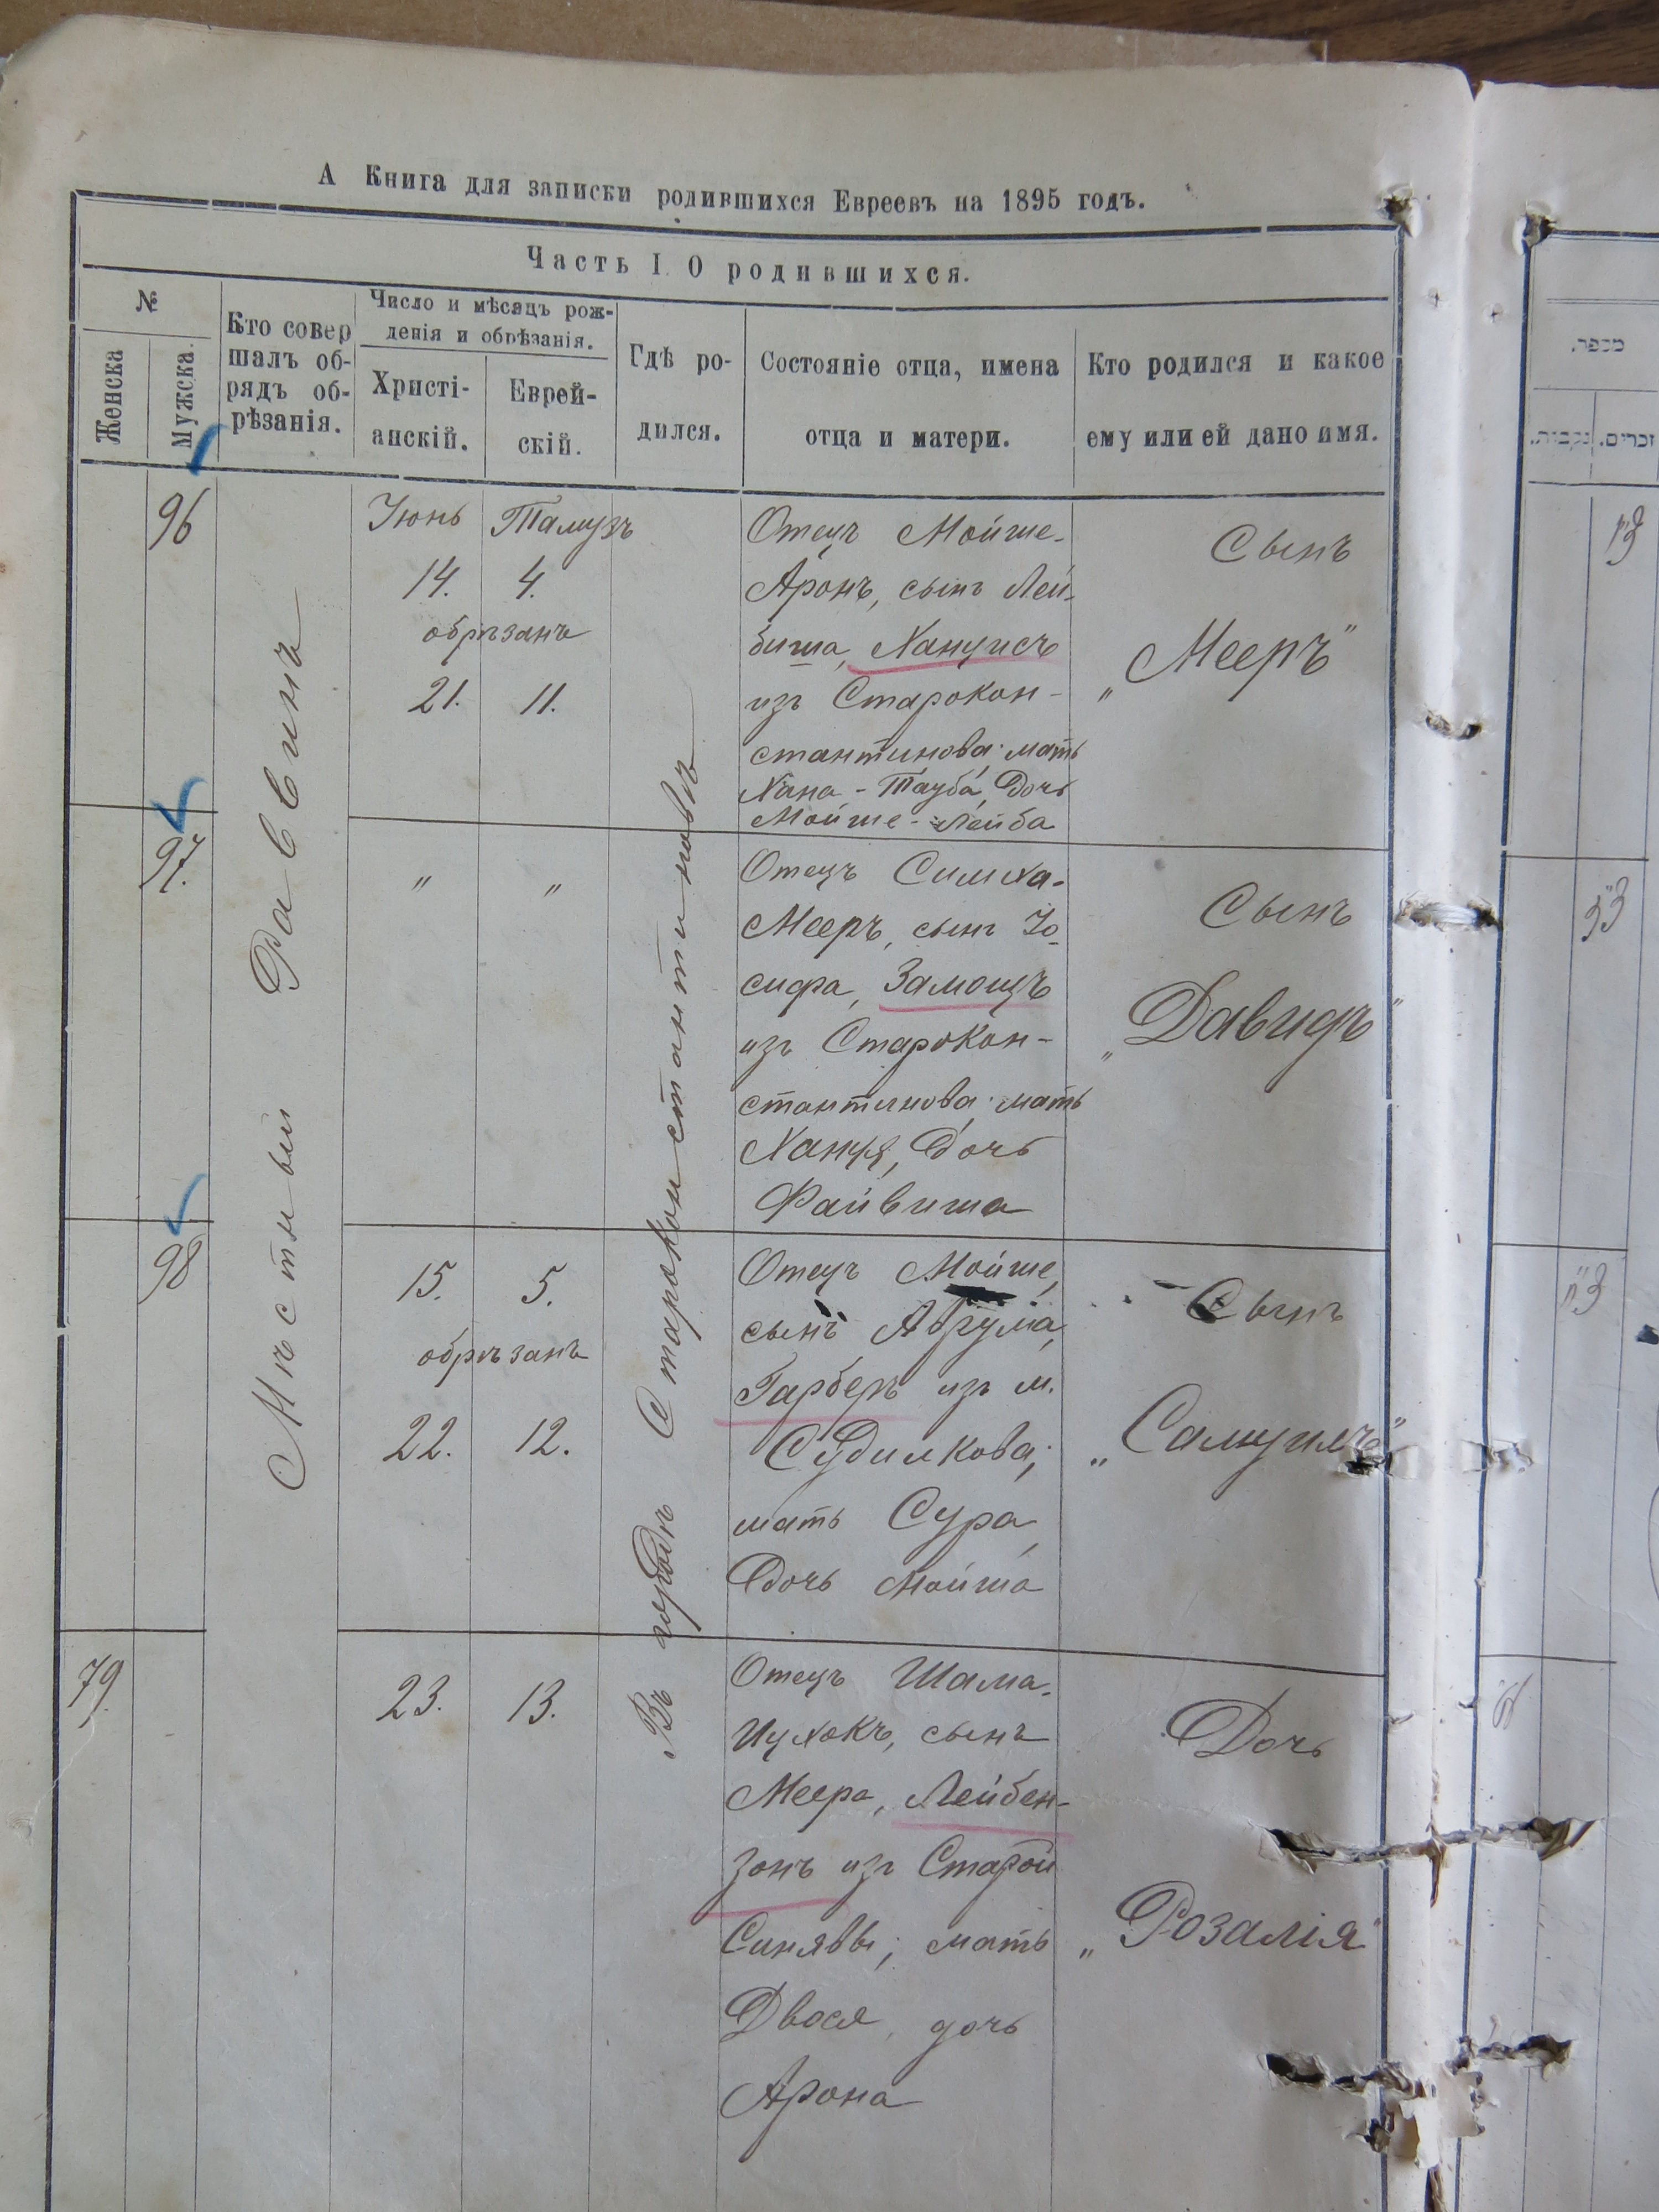 А Книга для записки родившихся Евреевъ на 1895 годъ.
Часть I О родившихся.
№
Женска
Мужска
Кто совер
шалъ об-
рядъ об-
рѣзанія.
Число и мѣсяцъ рож-
денія и обрѣзанія.
Христі-
анскій.
Еврей-
скій.
Гдѣ ро-
дился.
Состояніе отца, имена
отца и матери.
Кто родился и какое
ему или ей дано имя.
מספר.
נקבות.
זכרים.
Мѣстный Раввинъ
Въ городѣ Староконстантиновѣ
96
Іюнь Тамузъ
14. 4.
обрѣзанъ
21. 11.
Отецъ Мойше-
Аронъ, сынъ Лей-
биша, Ханцисъ
изъ Старокон-
стантинова; мать
Хана-Тауба, дочь
Мойше-Лейба
Сынъ
„Мееръ"
97.
" "
Отецъ Симха-
Мееръ, сынъ Іо-
сифа, Замощъ
изъ Старокон-
стантинова; мать
Ханця, дочь
Файвиша
Сынъ
„Давидъ"
98
15. 5.
обрѣзанъ
22. 12.
Отецъ Мойше,
сынъ Аврума,
Гарберъ изъ м.
Судилкова;
мать Сура,
дочь Мойша
Сынъ
„Самуилъ"
79.
23. 13.
Отецъ Шама-
Ицхокъ, сынъ
Меера, Лейбен-
зонъ изъ Старой
Синявы; мать
Двося, дочь
Арона
Дочь
„Розалія"